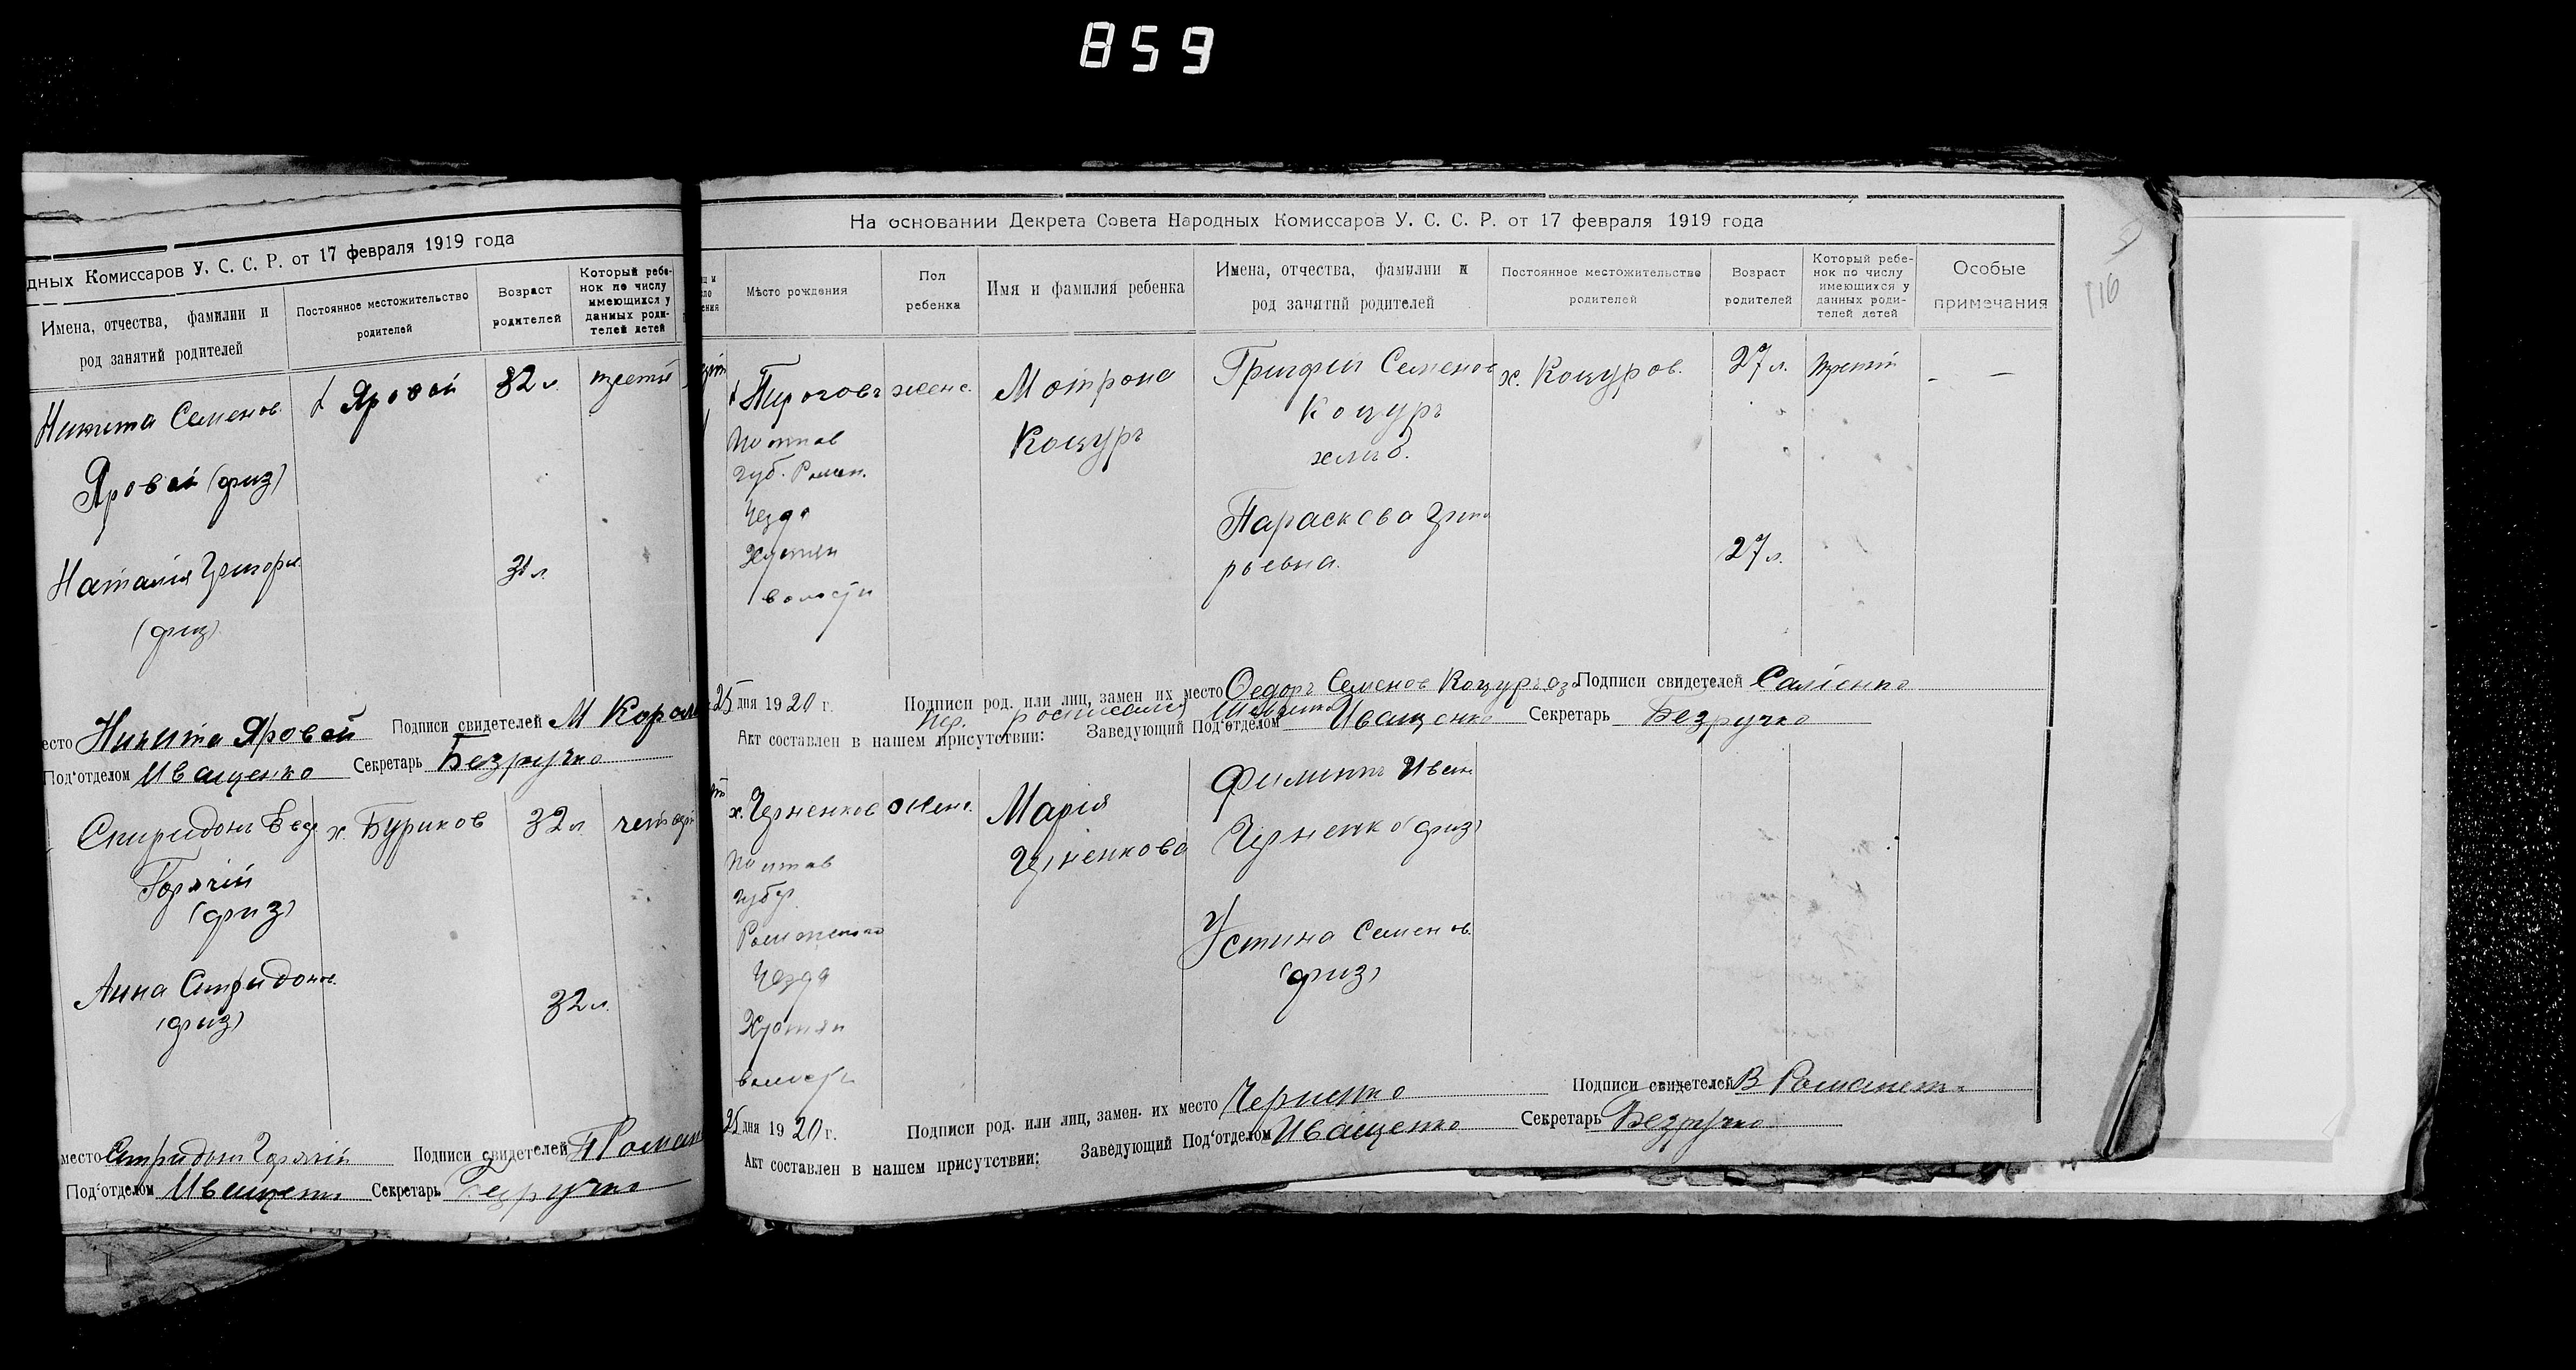 859
дных Комиссаров У. С. С. Р. от 17 февраля 1919 года
Имена, отчества, фамилии и род занятий родителей
Постоянное местожительство родителей
Возраст родителей
Который ребенок по числу имеющихся у данных родителей детей
Никита Семенов
Яровой (физ)
Яровой
32 л.
третій
Наталия Григорьев
(физ)
31 л.
есто Никита Яровой Подписи свидетелей М Корол
Под'отделом Иващенко Секретарь Безручко
Спиридон
х. Буриков
32 л
Горячій
(физ)
Анна Спиридонов
(физ)
32 л.
место Спридон Горячій Подписи свидетелей Роман
Под'отделом Иващенко Секретарь Безручко
На основании Декрета Совета Народных Комиссаров У. С. С. Р. от 17 февраля 1919 года
116
Мѣсто рождения
Пол ребенка
Имя и фамилия ребенка
Имена, отчества, фамилии и род занятий родителей
Постоянное местожительство родителей
Возраст родителей
Который ребенок по числу имеющихся у данных родителей детей
Особые примечания
Пироговъ
Полтав
губ. Ромен.
Уезда
Хустян
волости
женс.
Мотрона
Коцуръ
Григорій Семенов
Коцуръ
хлиб.
Параскева Григо
рьевна.
х. Коцуров.
27 л.
27 л.
третій
- —
25 дня 1920 г. Подписи род. или лиц, замен. их место Федоръ Семенов Коцуръ Подписи свидетелей Саліенко
росписался
Акт составлен в нашем присутствии: Заведующий Под'отделом Иващенко Секретарь Безручко
х. Черненков
Полтав
губер
Роменского
Уезда
Хустян
волости
женс.
Марія
Черненкова
Филиппъ Иван
Черненко (физ)
Устина Семенов.
(физ)
25 дня 1920 г. Подписи род. или лиц, замен. их место Черненко Подписи свидетелей В Романенко
Акт составлен в нашем присутствии: Заведующий Под'отделом Иващенко Секретарь Безручко